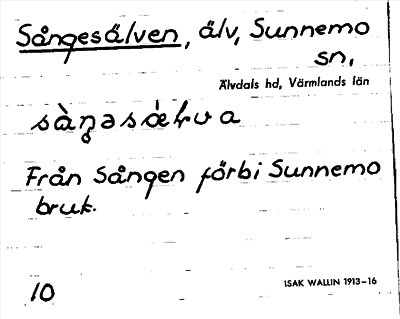 Sångesälven, älv, Sunnemo
sn,
Älvdals hd, Värmlands län
sàŋəsæ̀ɽva
Från Sången förbi Sunnemo
bruk.
10
ISAK WALLIN 1913–16